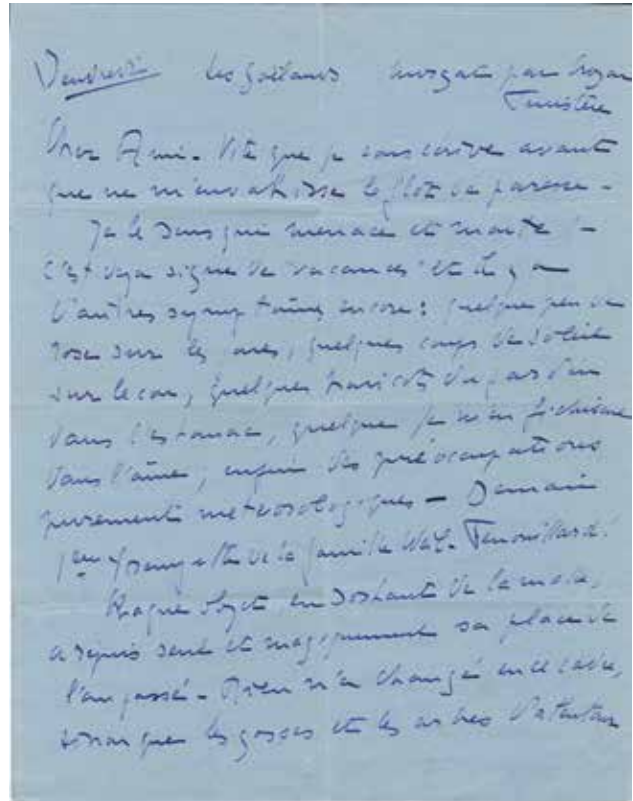 Vendredi Les Goëlands Morgat par Crozon
Finistère
Cher Ami - Vite que je vous écrive avant
que ne m'envahisse le flot de paresse -
Je le sens qui menace et monte -
C'est déjà signe de vacances et il y a
d'autres symptômes encore : quelque peu de
rose sur les joues, quelques coups de soleil
sur le cou, quelques haricots du jardin
dans l'estomac, quelque je m'en fichisme
dans l'âme, enfin des préoccupations
purement météorologiques - Demain
1ère de la famille Fenouillard !
Chaque objet en sortant de la malle,
a repris seul et magiquement sa place de
l'an passé - Rien n'a changé en ce cadre,
sinon que les gosses et les arbres